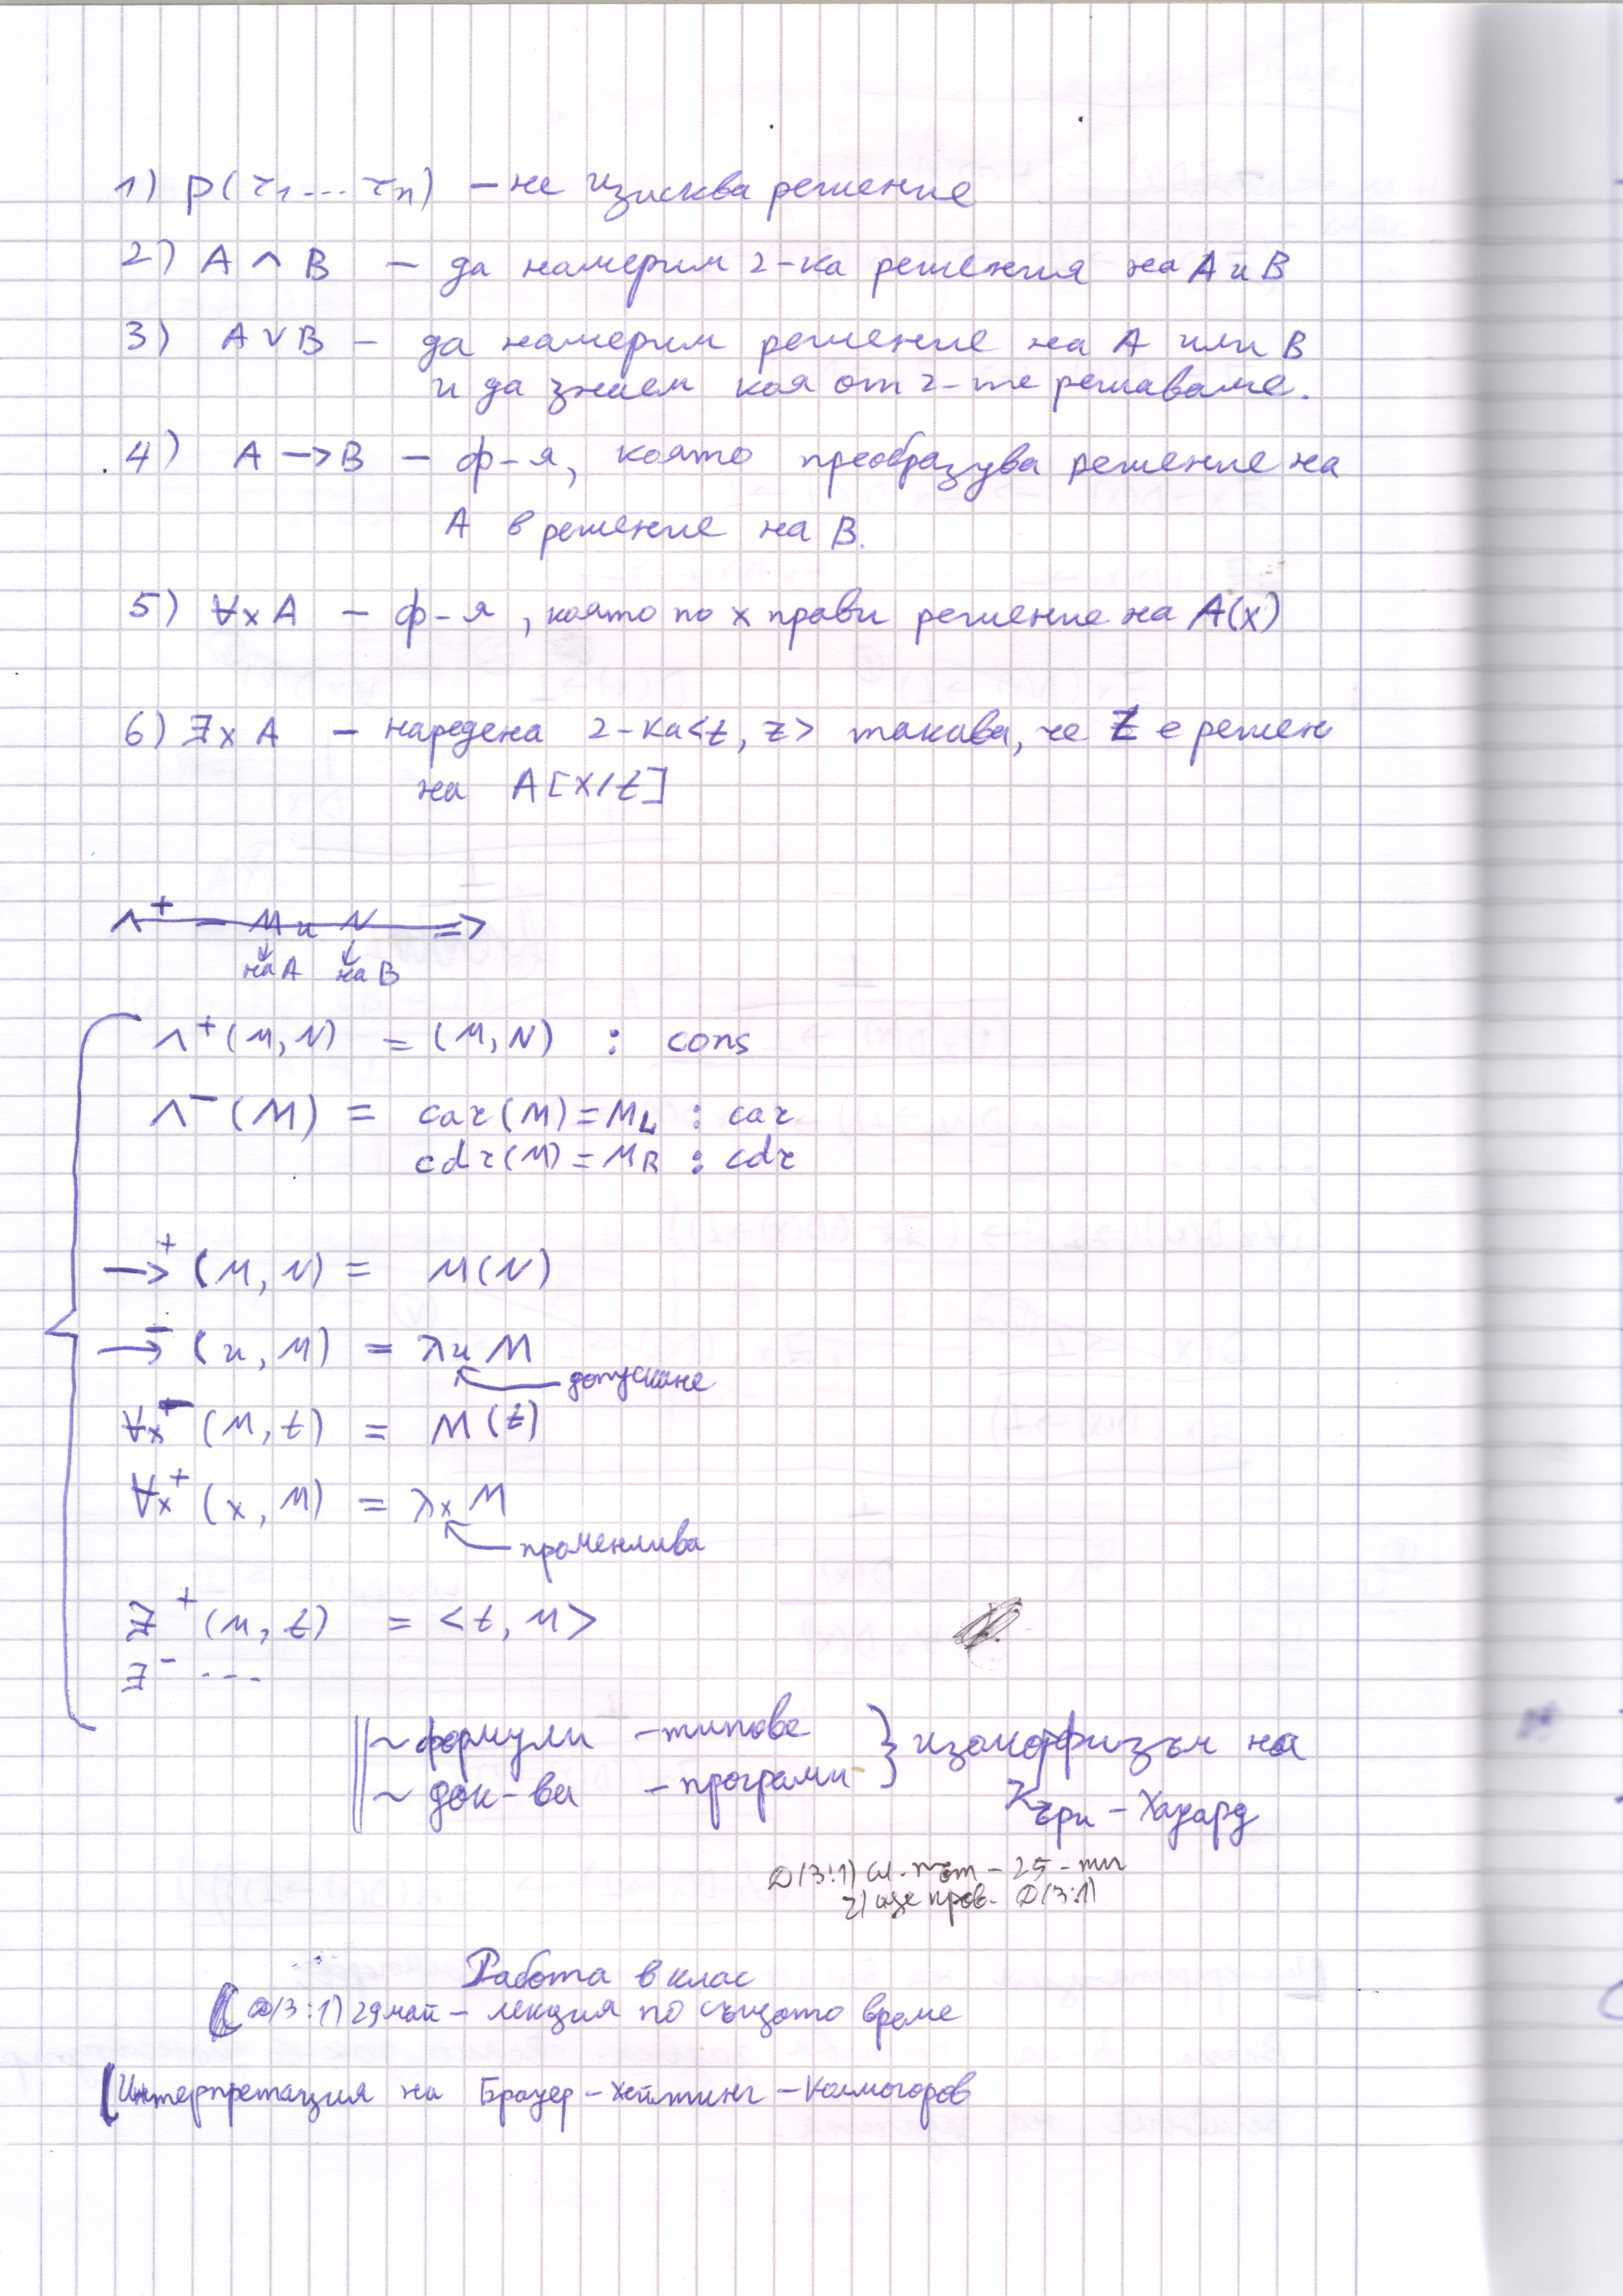 1) p(τ₁...τₙ) – не изисква решение
2) A ∧ B – да намерим 2-ка решения на A и B
3) A ∨ B – да намерим решение на A или B
и да знаем коя от 2-те решаваме.
4) A → B – ф-я, която преобразува решение на
A в решение на B.
5) ∀x A – ф-я, която по x прави решение на A(x)
6) ∃x A – наредена 2-ка <t, z> такава, че z е решен
на A[x/t]
∧⁺ – M и N ⇒
на A на B
∧⁺(M, N) = (M, N) : cons
∧⁻(M) = car(M) = M_L : car
cdr(M) = M_R : cdr
→⁺ (M, N) = M(N)
→⁻ (u, M) = λu M
допускане
∀x⁻ (M, t) = M(t)
∀x⁺ (x, M) = λx M
променлива
∃⁺ (M, t) = <t, M>
∃⁻ ...
~ формули – типове } изоморфизъм на
~ док-ва – програми Къри – Хауард
D(3:1) сл. път – 25-ти
2) още пров. D(3:1)
Работа в клас
D(3:1) 29 май – лекция по същото време
Интерпретация на Брауер – Хейтинг – Колмогоров